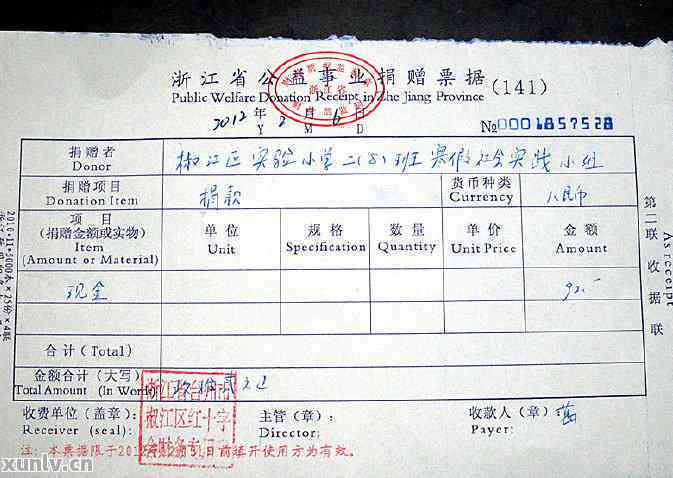 浙江省公益事业捐赠票据(141)
Public Welfare Donation Receipt in Zhe Jiang Province
浙江省
2012年2月6日 №0001857528
Y M D
捐赠者 椒江区实验小学二(8)班寒假社会实践小组
Donor
捐赠项目 捐款 货币种类 人民币
Donation Item Currency
项目 单位 规格 数量 单价 金额
(捐赠金额或实物) Unit Specification Quantity Unit Price Amount
Item
(Amount or Material)
现金 92.-
合计(Total)
金额合计(大写) 玖拾贰元正
Total Amount (in Words)
浙江省台州市
椒江区红十字
会财务专用
收费单位(盖章): 主管(章): 收款人(章)
Receiver (seal): Director: Payer:
注:本票据限于2012年12月31日前填开使用方为有效。
第二联 收据联
As receipt
2010·11·5000本×25份×4联
xunlv.cn